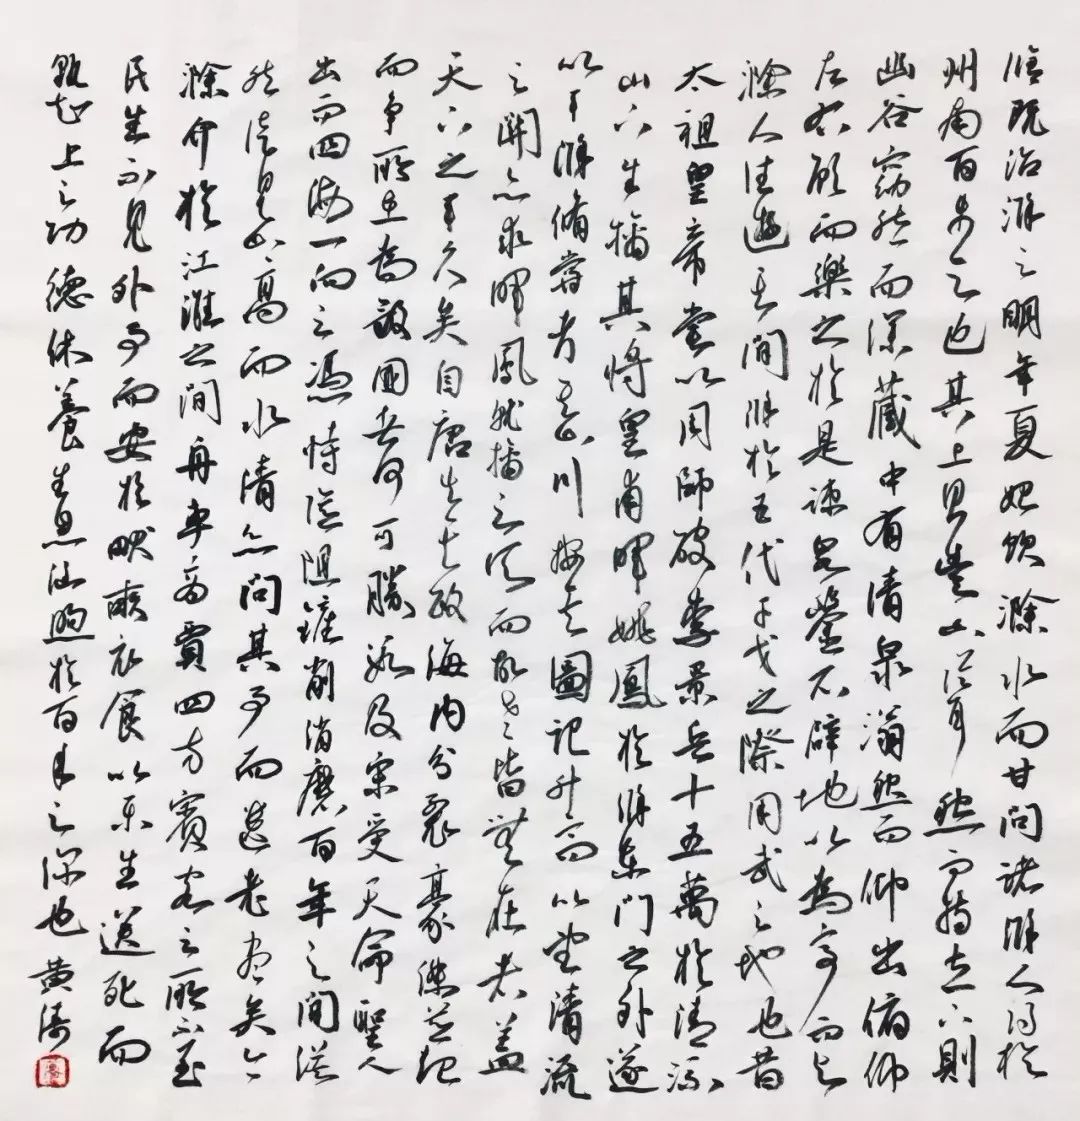 脩既治滁之明年夏始飲滁水而甘問諸滁人得於
州南百步之也其上則豐山聳然而特立下則
幽谷窈然而深藏中有清泉滃然而仰出俯仰
左右顧而樂之於是疏泉鑿石辟地以為亭而與
滁人往遊其間滁於五代干戈之際用武之地也昔
太祖皇帝嘗以周師破李景兵十五萬於清流
山下生擒其將皇甫暉姚鳳於滁東門之外遂
以平滁脩嘗考其山川按其圖記升高以望清流
之關亦求暉鳳就擒之所而故老皆無在者蓋
天下之平久矣自唐失其政海內分裂豪傑並起
而爭所在為敵國者何可勝數及宋受天命聖人
出而四海一向之憑恃險阻鏟削消磨百年之間漠
然徒見山高而水清欲問其事而遺老盡矣今
滁介於江淮之間舟車商賈四方賓客之所不至
民生不見外事而安於畎畝衣食以樂生送死而
孰知上之功德休養生息涵煦於百年之深也 黃濤